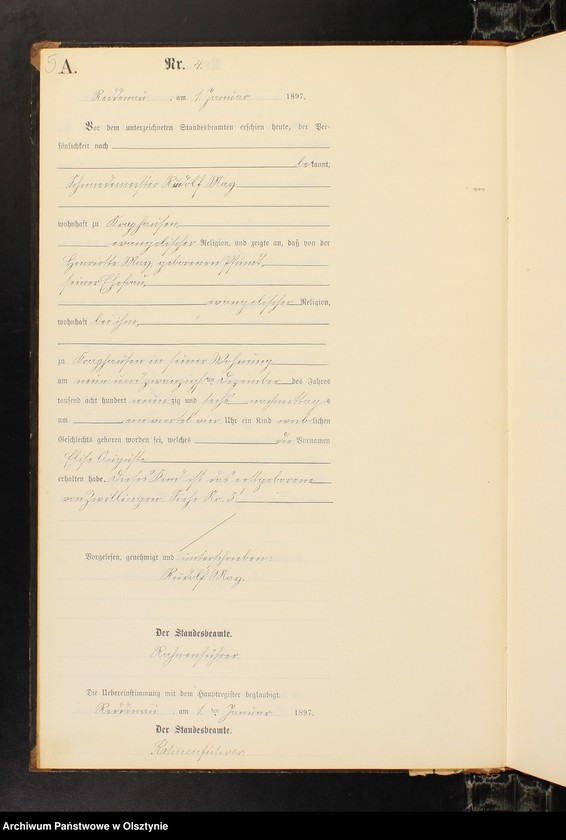 5
A.
Nr. 4.
Reddenau, am 1. Januar 1897.
Vor dem unterzeichneten Standesbeamten erschien heute, der Per-
sönlichkeit nach
bekannt,
Schmiedemeister Rudolf May
wohnhaft zu Kraphausen
evangelischer Religion, und zeigte an, daß von der
Henriette May, geborenen
seiner Ehefrau,
evangelischer Religion,
wohnhaft bei ihm,
zu Kraphausen in seiner Wohnung
am neun und zwanzigsten Dezember des Jahres
tausend acht hundert neunzig und sechs nachmittags
um ein viertel vier Uhr ein Kind weiblichen
Geschlechts geboren worden sei, welches die Vornamen
Elise Auguste
erhalten habe. Dieses Kind ist das erstgeborene
von Zwillingen. Siehe Nr. 5
Vorgelesen, genehmigt und unterschrieben:
Rudolf May.
Der Standesbeamte.
Rahnenführer.
Die Uebereinstimmung mit dem Hauptregister beglaubigt.
Reddenau, am 1. ten Januar 1897.
Der Standesbeamte.
Rahnenführer
Archiwum Państwowe w Olsztynie